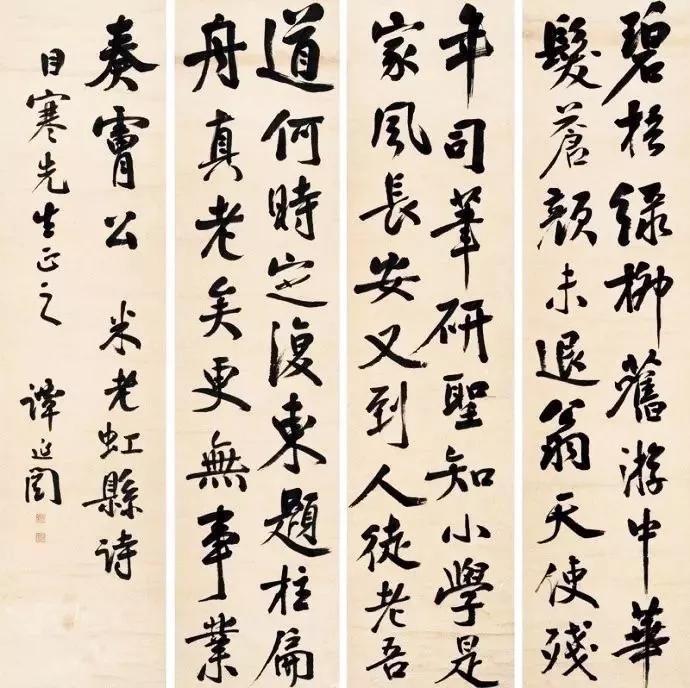 碧梧緑柳舊游中華
髮蒼顔未退翁天使殘
年司筆研聖知小學是
家風長安又到人徒老吾
道何時定復東題柱扁
舟真老矣更無事業
奏膚公 米老虹縣詩
目寒先生正之 譚延闓